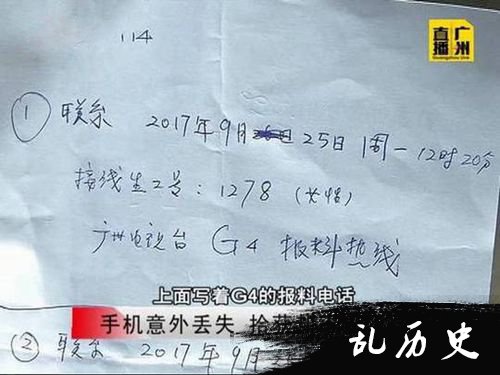 114
直播广州
Guangzhou Live
① 联系 2017年9月 25日 周一 12时20分
接线生工号：1278 (女性)
广州电视台 G4 报料热线
上面写着G4的报料电话
手机意外丢失 拾获
② 联系 2017年9月
乱历史